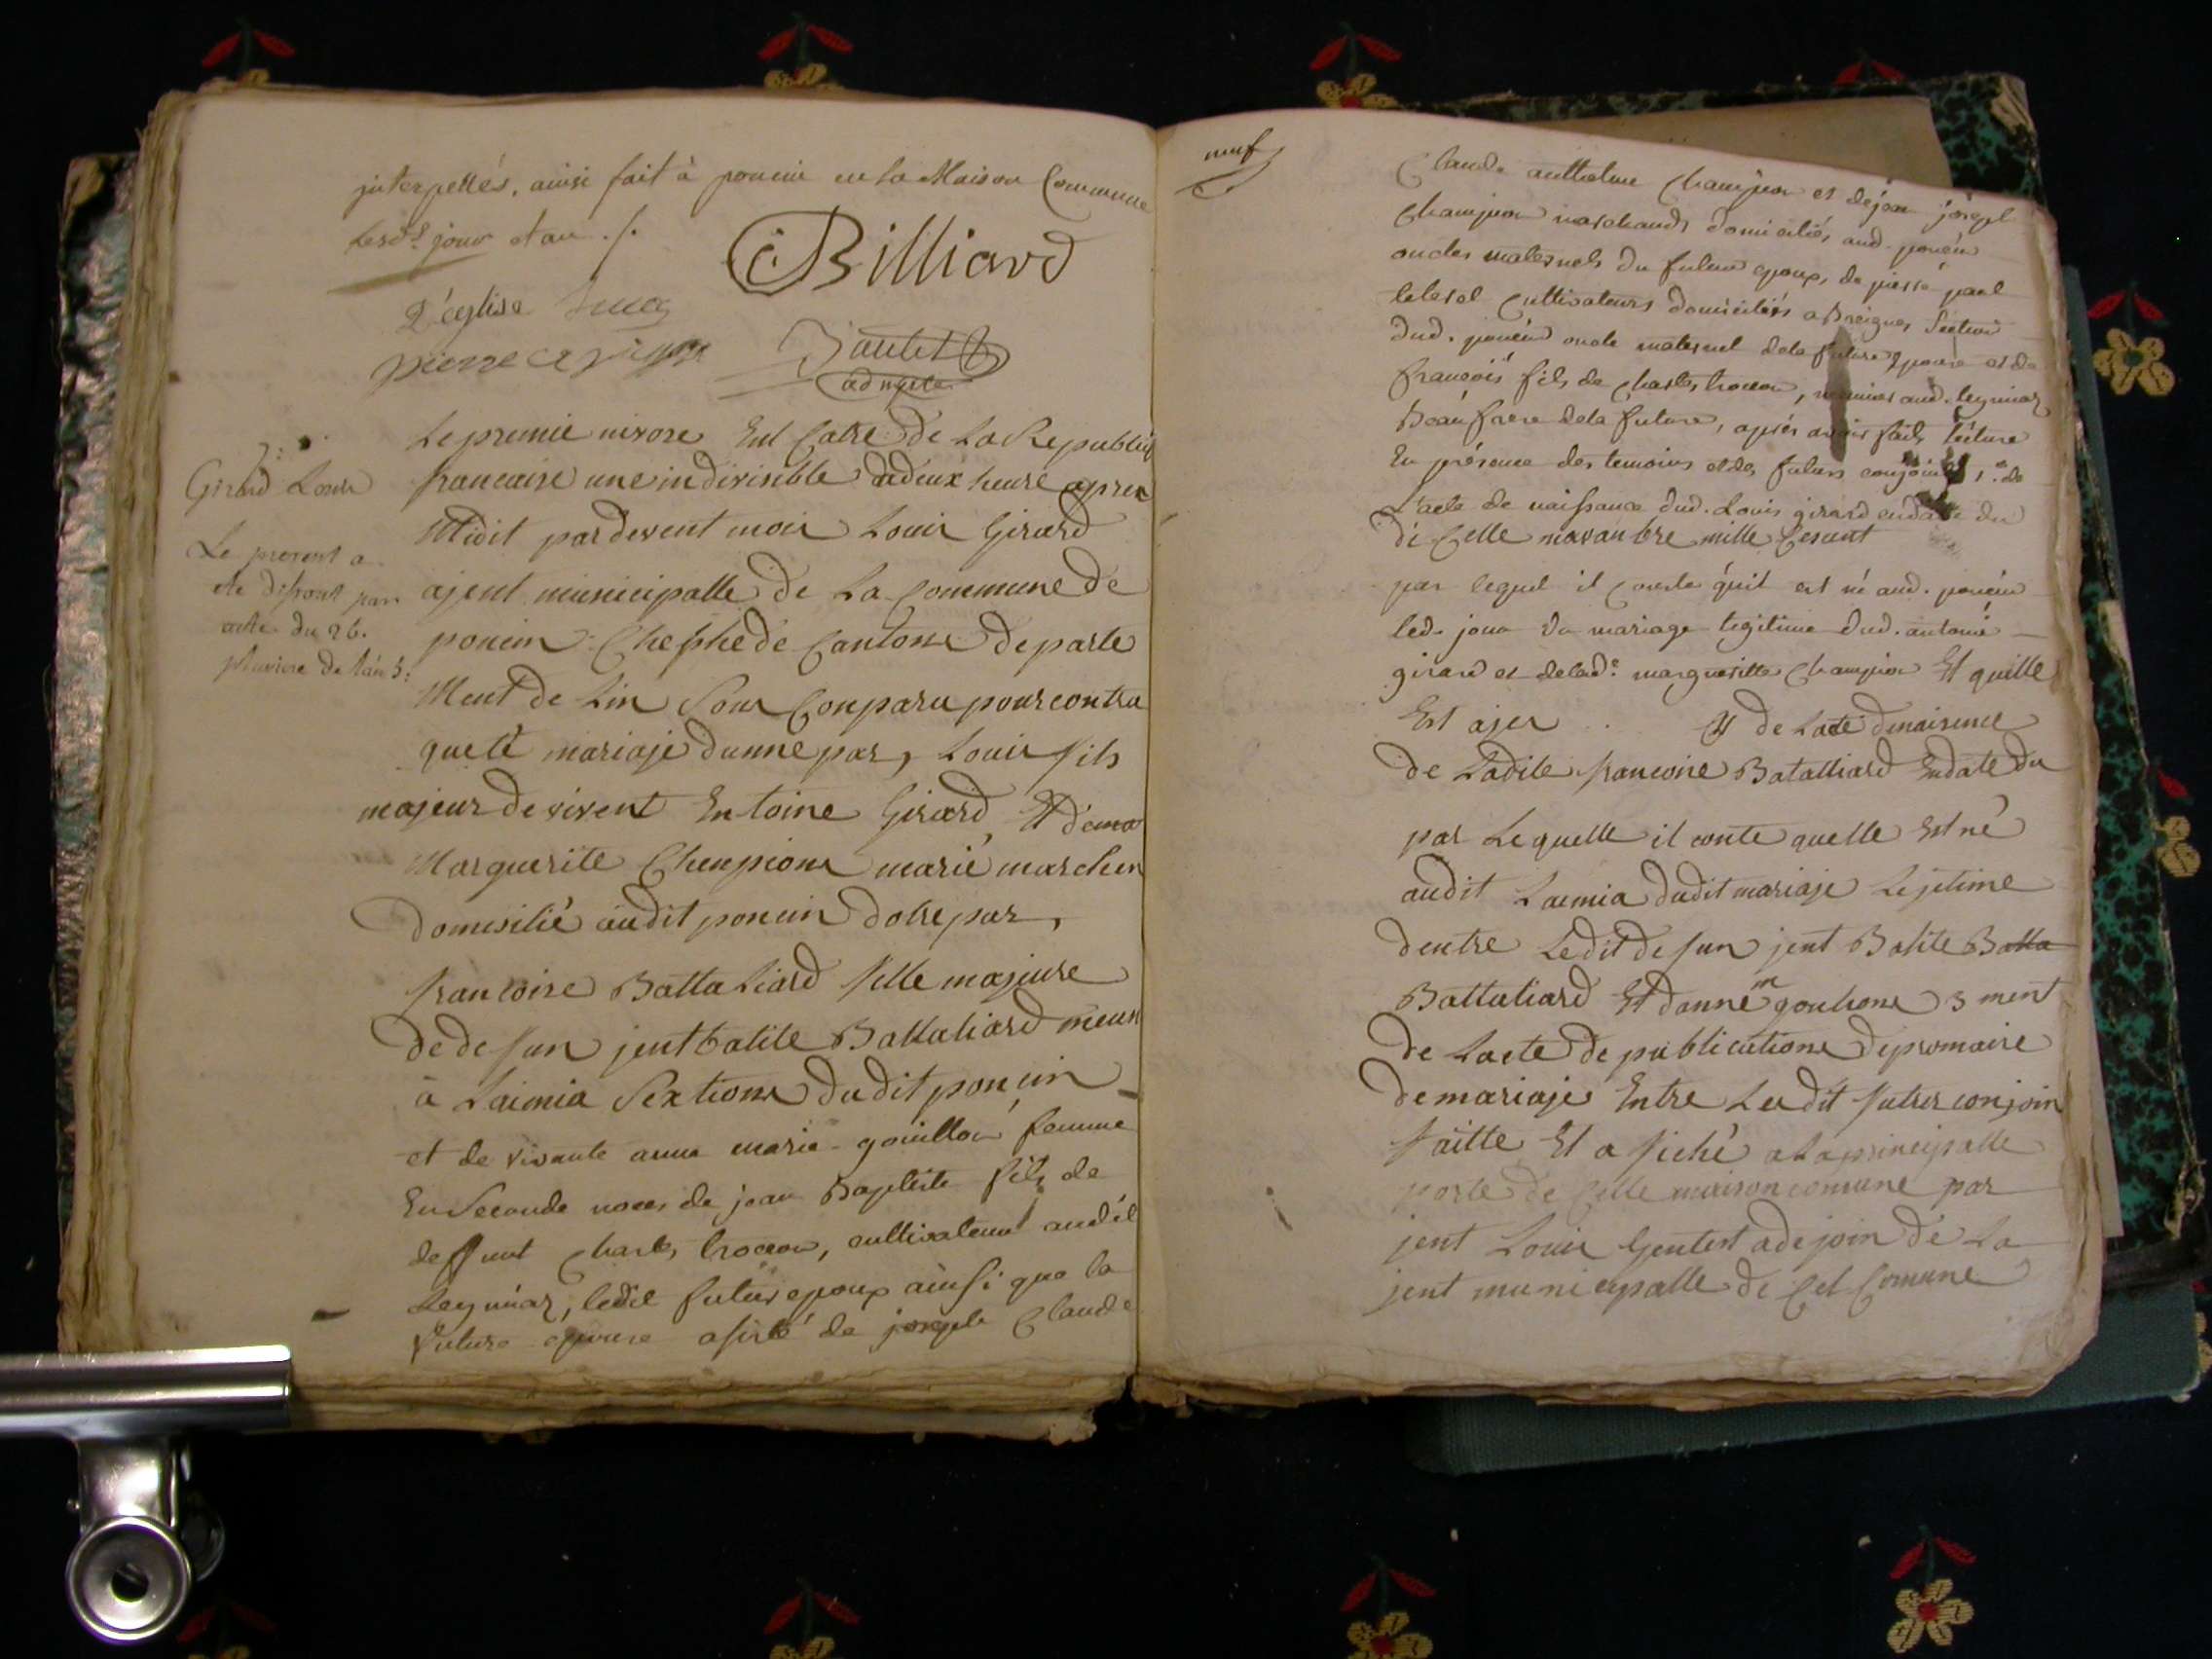 interpellés, ainsi fait à poncin en la Maison Commune
lesd.s jour et an ./.
Billiard
L'église
pierre
adnicte
Le premie nivose Ent Catre De La Republiq
francaise une indivisible a deux heure apres
Midit par devent moir Louir Girard
ajent municipalle De La Commune De
poncin Chefhe de Canton Departe
Ment de Lin Sour Conparu pour contra
queté mariaje Dunne par, Louir fils
majeur De vivent Entoine Girard Et de
Marguerite Chenpion marié marchen
Domisilié audit poncin Dotre par,
francoise Battaliard fille majeure
De defun jent batite Battaliard meun
à Laimia Sextion Dudit poncin
et de vivante anne marie gouillon femme
En Seconde noces de jean Baptiste fils de
deffunt Charles trocon, cultivateur audit
Leymiaz, ledit futur epoux ainsi que la
future epouse asisté de joseph Claude
2:
Girard Louis
Le present a
ete disout par
acte du 26.
pluviose de l'an 5:
neuf
Claude anthelme Champion et de jean joseph
Champion marchands domiciliés aud. poncin
oncles maternels du futur epoux, de pierre paul
cultivateurs domiciliés a Breignes Section
dud. poncin oncle maternel dela future epouse et de
françois fils de Charles trocon, aud. leymiaz
Beaufrere dela future, après avoir fait lecture
En présence des temoins et des futurs conjoints 1.° de
L'acte de naissance dud. Louis girard en date du
di Celle navanbre mille Cesant
par lequel il conste qu'il est né aud. poncin
led. jour du mariage legitime dud. antoine
girard et delad.e margueritte Champion Et quille
Est ajer .. Et de Lacte denaisence
De Ladite francoise Batalliard Endate Du
par Lequelle il conte quelle Est né
audit Laimia dudit mariaje Lejitime
dentre Ledit Defun jent Batite Batta
Battaliard Et danne m gouhon 3 ment
De Lacte De publication De promaire
De mariaje Entre Ledit futur conjoin
faitte Et afiché a La principalle
porte De Celle maison comune par
jent Louir Gentet adejoin De La
jent municipalle De Cet Comune